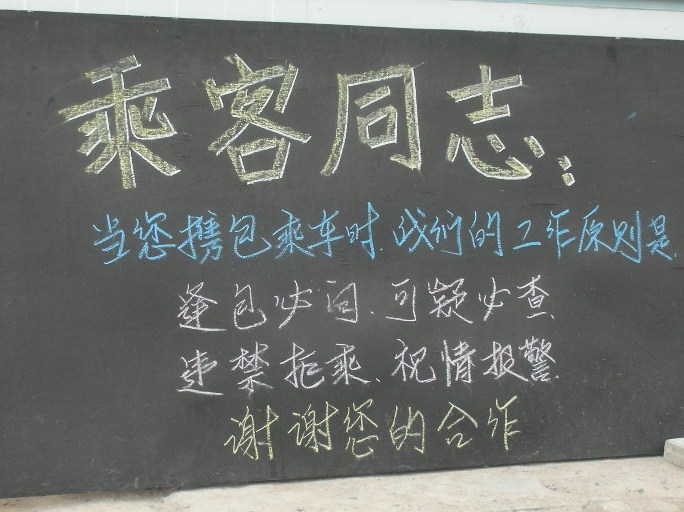 乘客同志：
当您携包乘车时、我们的工作原则是
逢包必问、可疑必查、
违禁拒乘、视情报警
谢谢您的合作